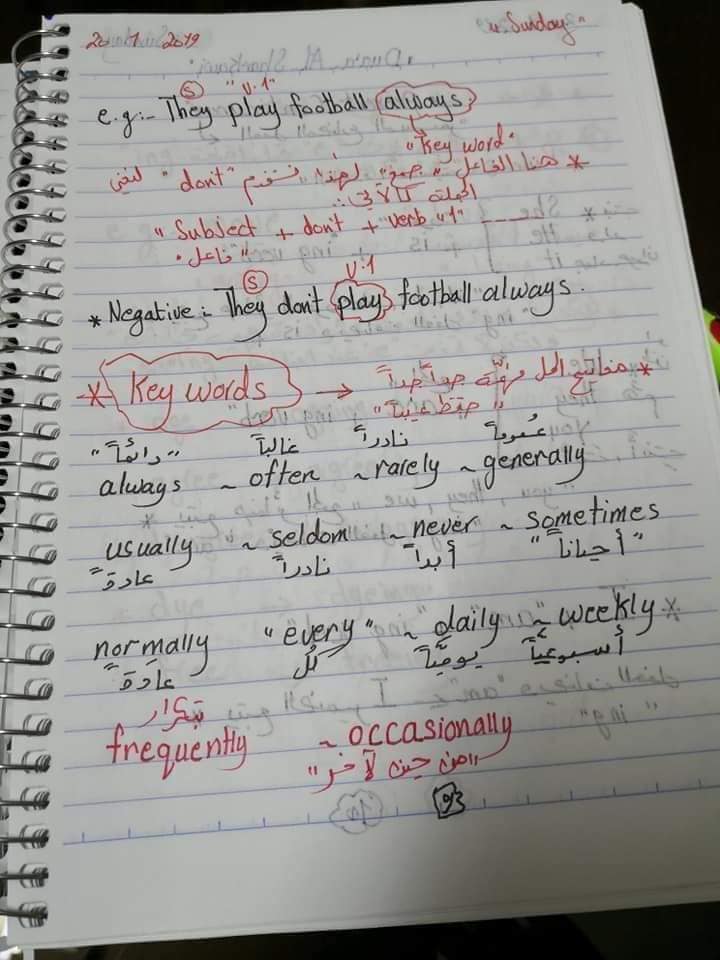 20 1 2019 "Sunday"
(S) "V.1"
e.g:- They play football always.
"Key word"
* هنا الفاعل "جمع" لهذا نستخدم "don't" لنفي
الجملة كالآتي:
"Subject + don't + verb "1"
"فاعل"
(S) V.1
* Negative: They don't play football always.
* Key words → * مفاتيح الحل مهمّة جداً جداً
"حفظ غيباً"
"دائماً" غالباً نادراً عُموماً
always ~ often ~ rarely ~ generally
usually ~ seldom ~ never ~ sometimes
عادةً نادراً أبداً "أحياناً"
normally "every" ~ daily ~ weekly
عادَةً كُل يوميّاً أسبوعيّاً
بتكرار
frequently ~ occasionally
"من حين لآخر"